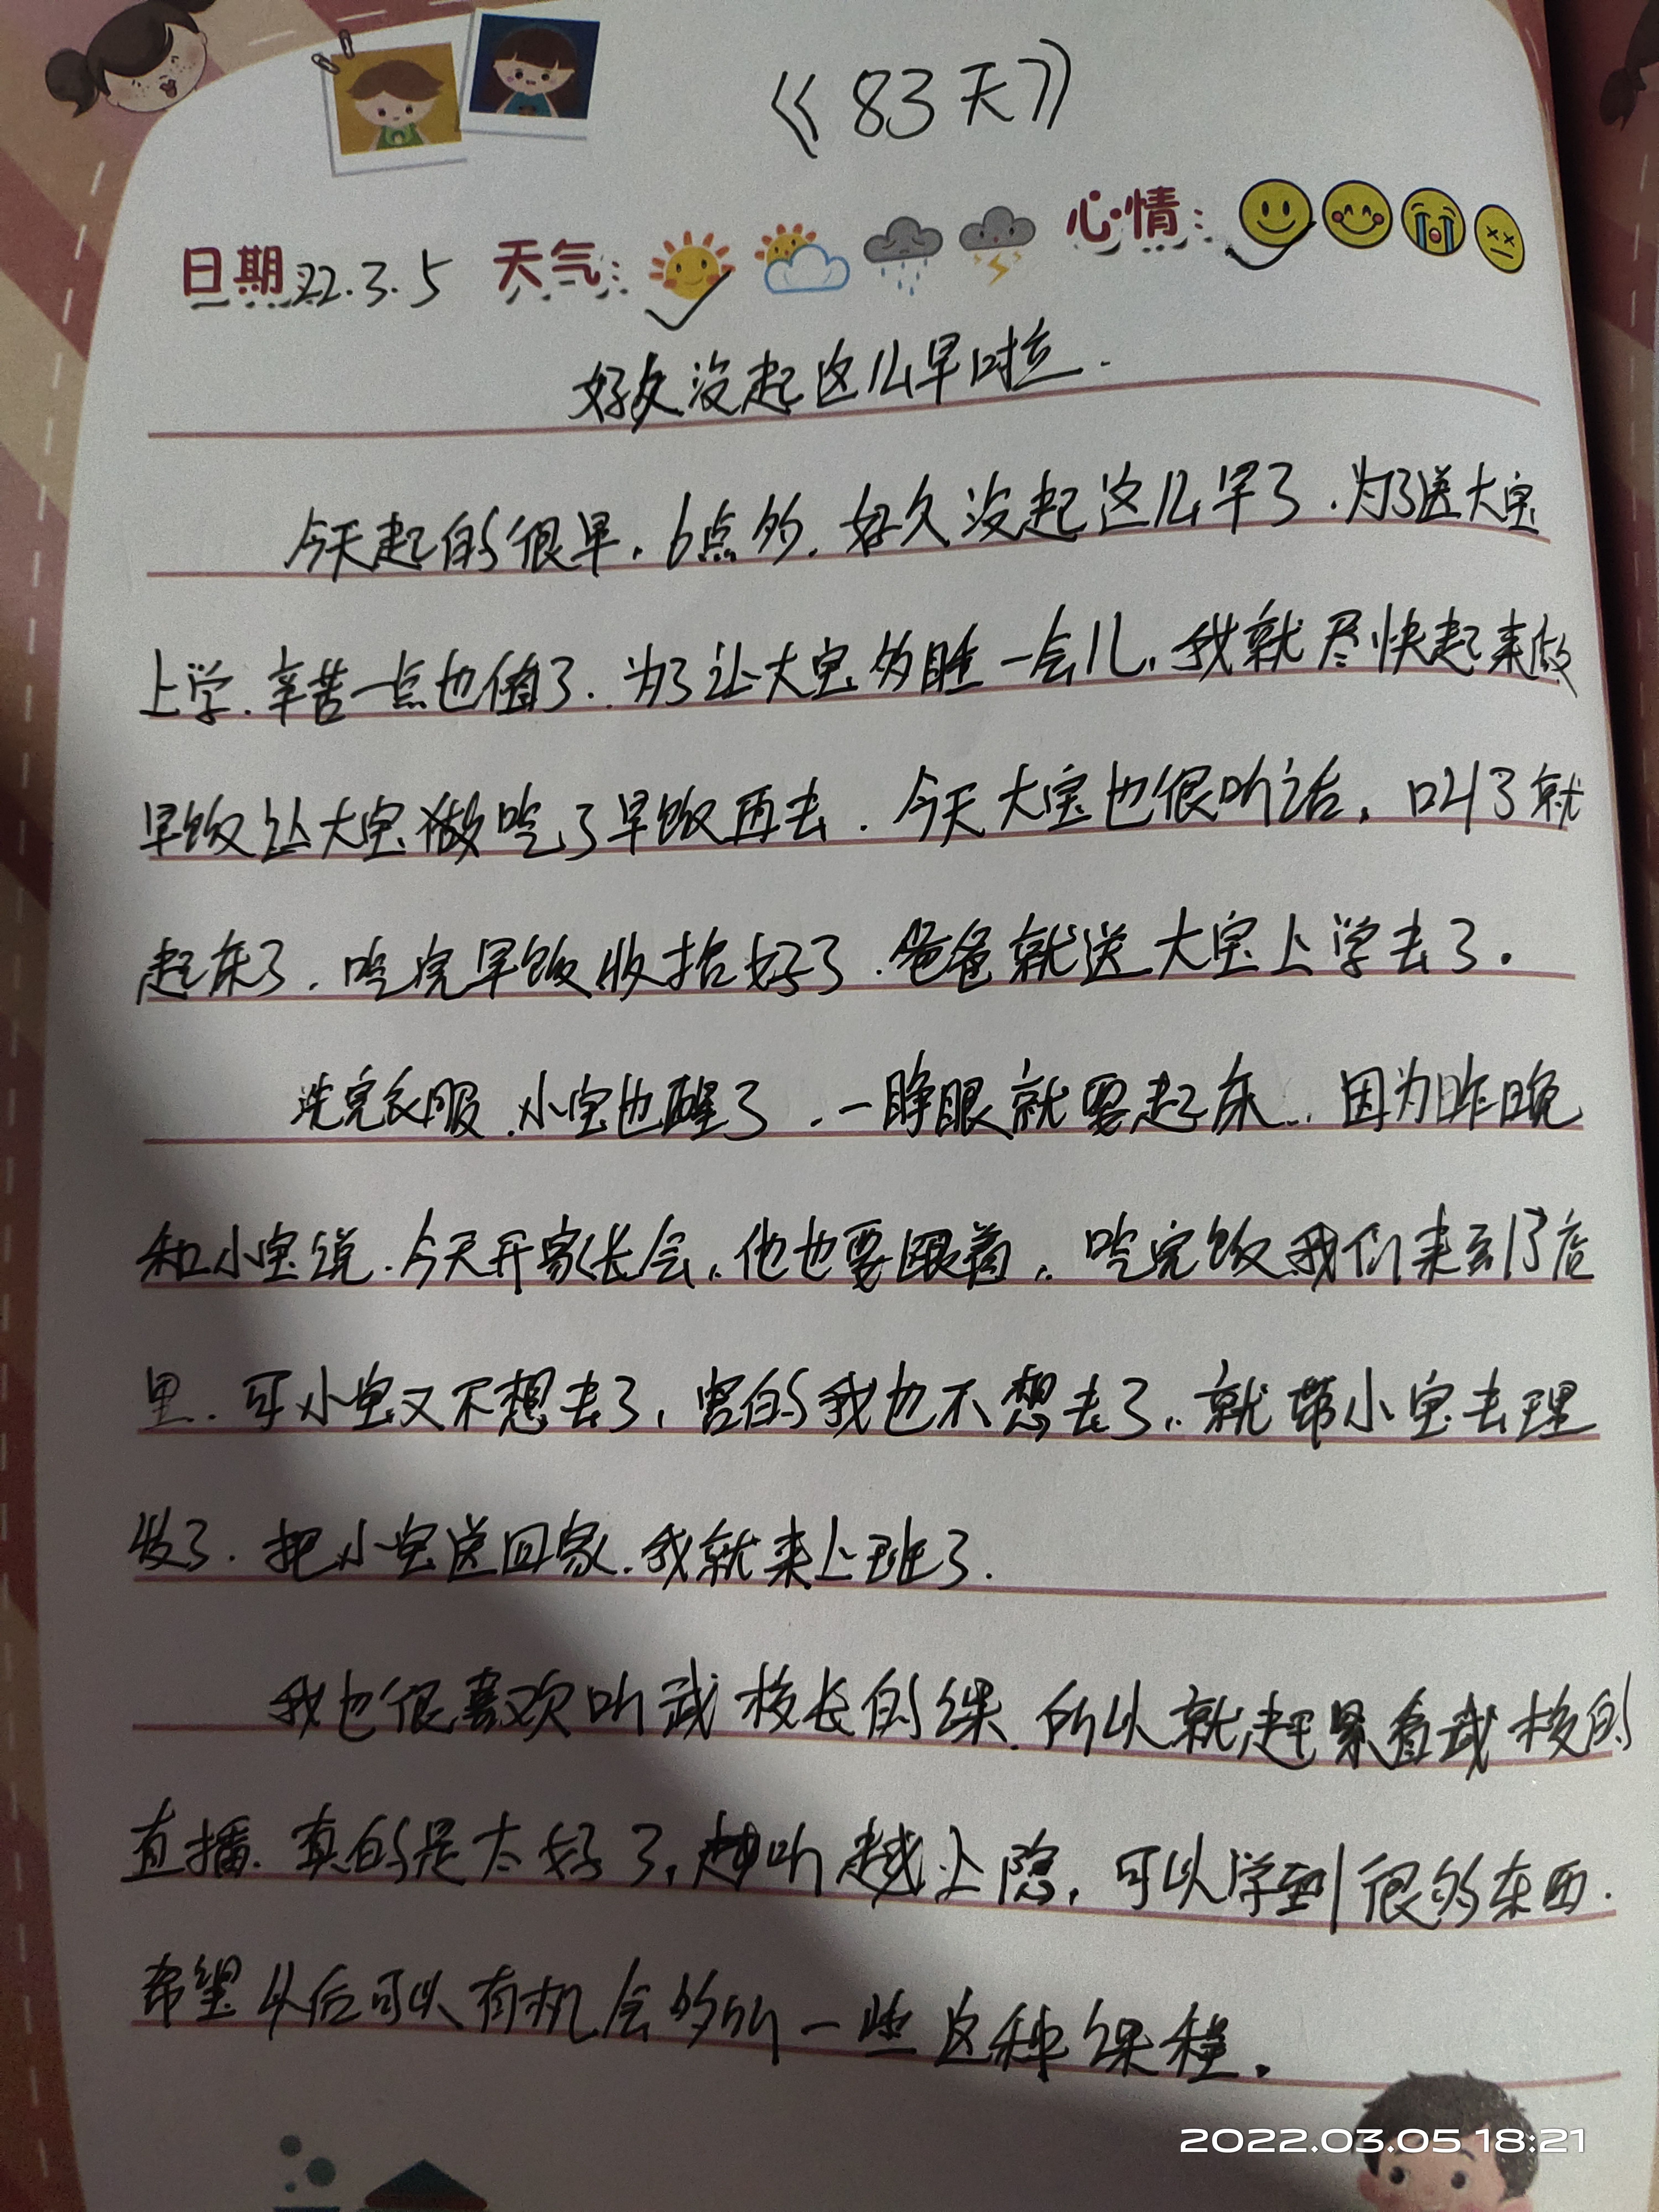 《83天》
日期 22.3.5 天气: 心情:
好久没起这么早啦.
今天起的很早.6点多.好久没起这么早了.为了送大宝
上学.辛苦一点也值了.为了让大宝多睡一会儿.我就尽快起来做
早饭让大宝做吃了早饭再去.今天大宝也很听话,叫了就
起床了.吃完早饭收拾好了.爸爸就送大宝上学去了.
洗完衣服.小宝也醒了.一睁眼就要起床..因为昨晚
和小宝说.今天开家长会.他也要跟着..吃完饭我们来到了店
里.可小宝又不想去了,害的我也不想去了..就带小宝去理
发了.把小宝送回家.我就来上班了.
我也很喜欢听武校长的课.所以就赶紧看武校的
直播.真的是太好了,越听越上隐,可以学到很多东西.
希望以后可以有机会多听一些这种课程.
2022.03.05 18:21